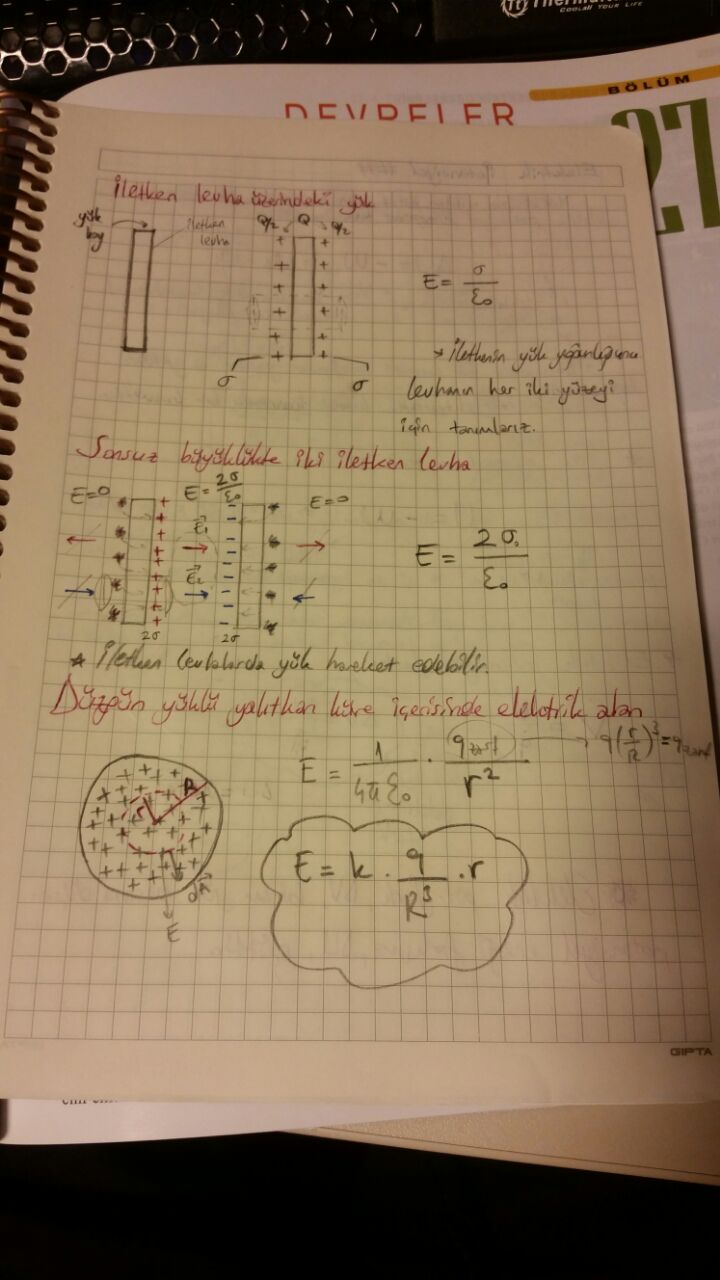 Thermal
COOLALL YOUR LIFE
BÖLÜM
DEVRELER
27
İletken levha üzerindeki yük
yük
koy
iletken
levha
Q/2 Q Q/2
+ +
+ +
+ +
+ +
+ +
+ +
σ σ
E = σ/ε₀
* İletkenin yük yoğunluğunu
levhanın her iki yüzeyi
için tanımlarız.
Sonsuz büyüklükte iki iletken levha
E=0 E=2σ/ε₀ E=0
E⃗₁
E⃗₂
2σ 2σ
E = 2σ/ε₀
* İletken levhalarda yük hareket edebilir.
Düzgün yüklü yalıtkan küre içerisinde elektrik alan
R
r
dA⃗
E
E = 1/4πε₀ · q/r²
q(r/R)³ =
E = k · q/R³ · r
GIPTA